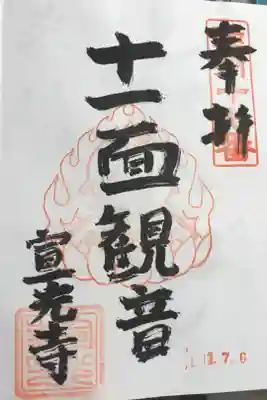 奉拝
十一面観音
宣光寺